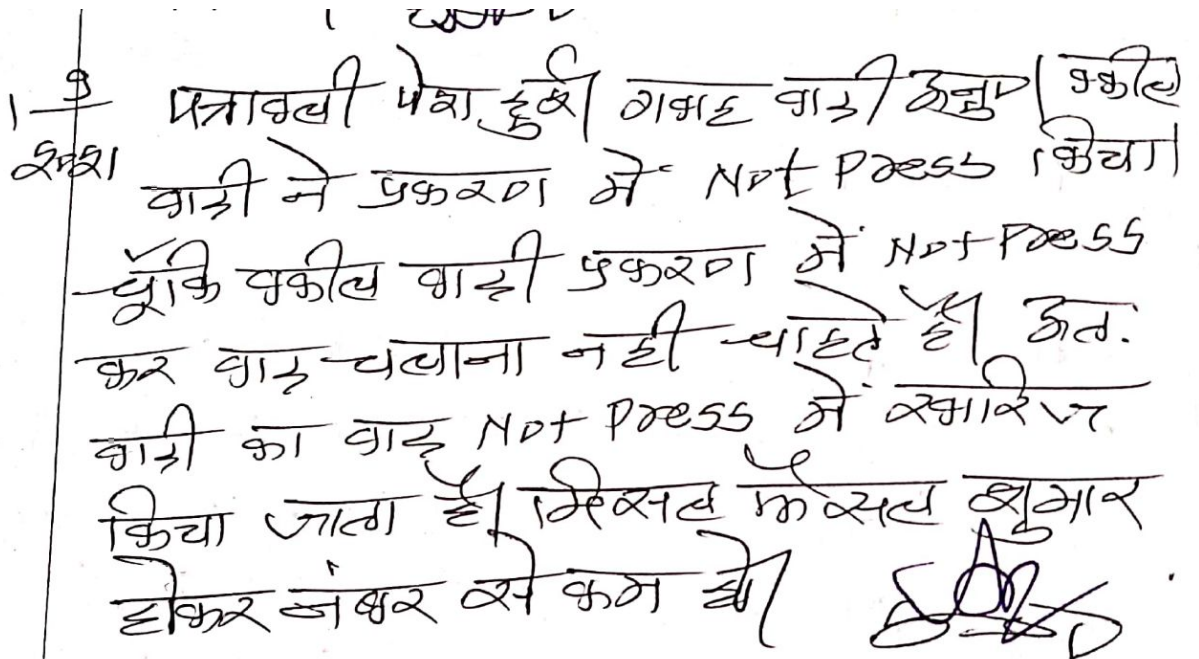 पत्रावली पेश हुई। गवाह वादी अनु०। वकील
वादी ने प्रकरण में Not Press किया।
चूंकि वकील वादी प्रकरण में Not Press
कर वाद चलाना नही चाहते है। अत:
वादी का वाद Not Press में खारिज
किया जाता है। मिसल फैसल शुमार
होकर नंबर से कम हो।